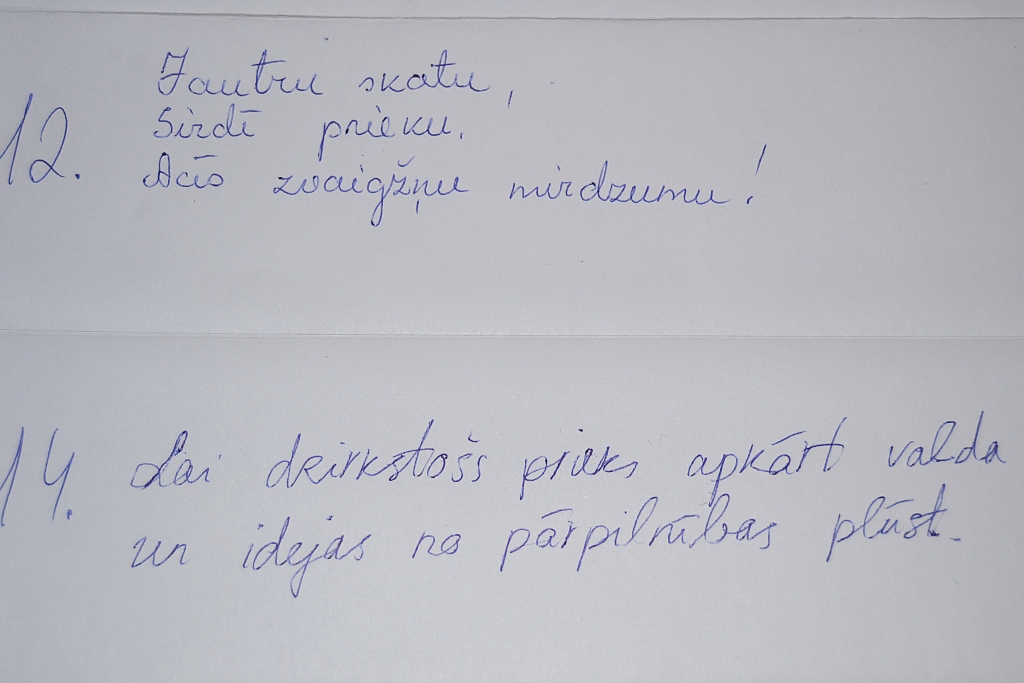 12. Jautru skatu,
Sirdī prieku.
Acīs zvaigžņu mirdzumu!
14. Lai dzirkstošs prieks apkārt valda
un idejas no pārpilnības plūst.